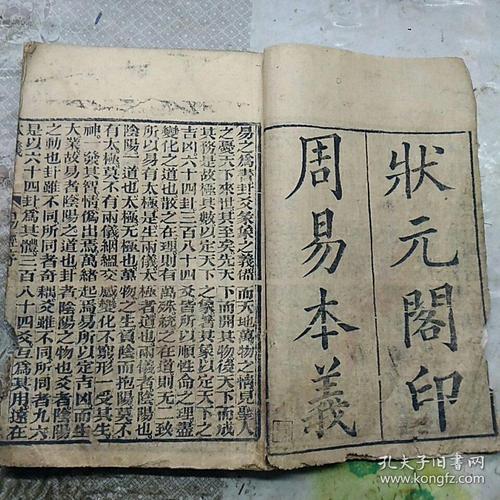 狀元閣印
周易本義
易之為書卦爻彖象之義備而天地萬物之情見聖人
之憂天下來世其至矣先天下而開其物後天下而成
其務是故極其數以定天下之象著其象以定天下之
吉凶六十四卦三百八十四爻皆所以順性命之理盡
變化之道也散之在理則有萬殊統之在道則無二致
所以易有太極是生兩儀太極者道也兩儀者陰陽也
陰陽一道也太極無極也萬物之生負陰而抱陽莫不
有太極莫不有兩儀絪縕交感變化不窮形一受其生
神一發其智情偽出焉萬緒起焉易所以定吉凶而生
大業故易者陰陽之道也卦者陰陽之物也爻者陰陽
之動也卦雖不同所同者奇耦爻雖不同所同者九六
是以六十四卦為其體三百八十四爻互為其用遠在
孔夫子旧书网
www.kongfz.com